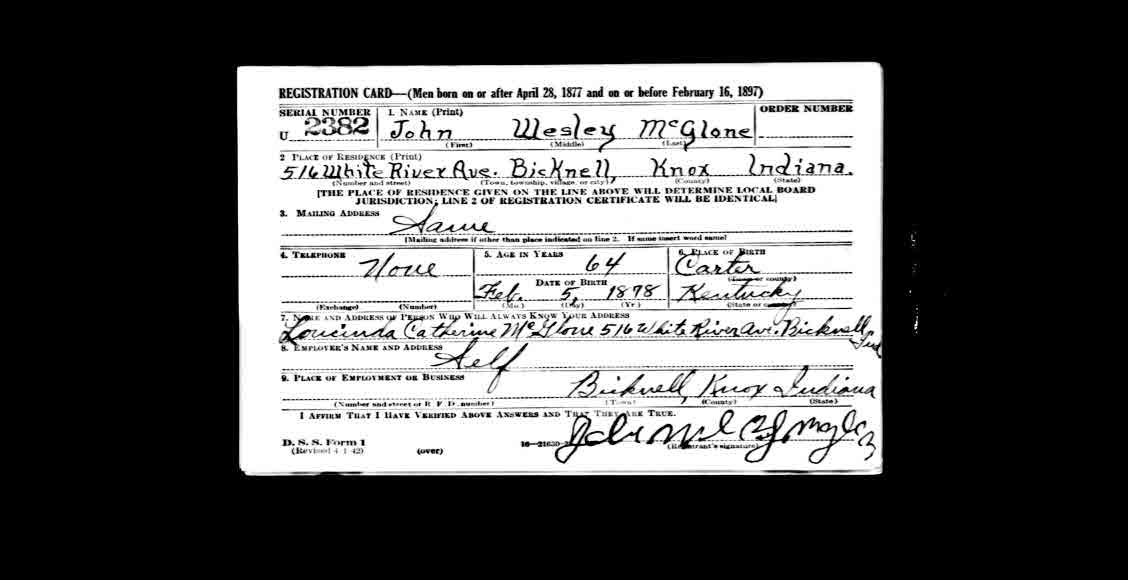 REGISTRATION CARD—(Men born on or after April 28, 1877 and on or before February 16, 1897)
SERIAL NUMBER 1. NAME (Print) ORDER NUMBER
U 2382 John Wesley McGlone
(First) (Middle) (Last)
2 PLACE OF RESIDENCE (Print)
516 White River Ave. Bicknell, Knox Indiana.
(Number and street) (Town, township, village, or city) (County) (State)
[THE PLACE OF RESIDENCE GIVEN ON THE LINE ABOVE WILL DETERMINE LOCAL BOARD
JURISDICTION; LINE 2 OF REGISTRATION CERTIFICATE WILL BE IDENTICAL]
3. MAILING ADDRESS
Same
[Mailing address if other than place indicated on line 2. If same insert word same]
4. TELEPHONE 5. AGE IN YEARS 6. PLACE OF BIRTH
None 64 Carter
DATE OF BIRTH (Town or county)
Feb. 5, 1878 Kentucky
(Exchange) (Number) (Mo.) (Day) (Yr.) (State or country)
7. NAME AND ADDRESS OF PERSON WHO WILL ALWAYS KNOW YOUR ADDRESS
Loucinda Catherine McGlone 516 White River Ave. Bicknell, Ind
8. EMPLOYER'S NAME AND ADDRESS
Self
9. PLACE OF EMPLOYMENT OR BUSINESS
Bicknell, Knox Indiana
(Number and street or R. F. D. number) (Town) (County) (State)
I AFFIRM THAT I HAVE VERIFIED ABOVE ANSWERS AND THAT THEY ARE TRUE.
D. S. S. Form 1
(Revised 4-1-42) (over) 16—21630-2 (Registrant's signature)